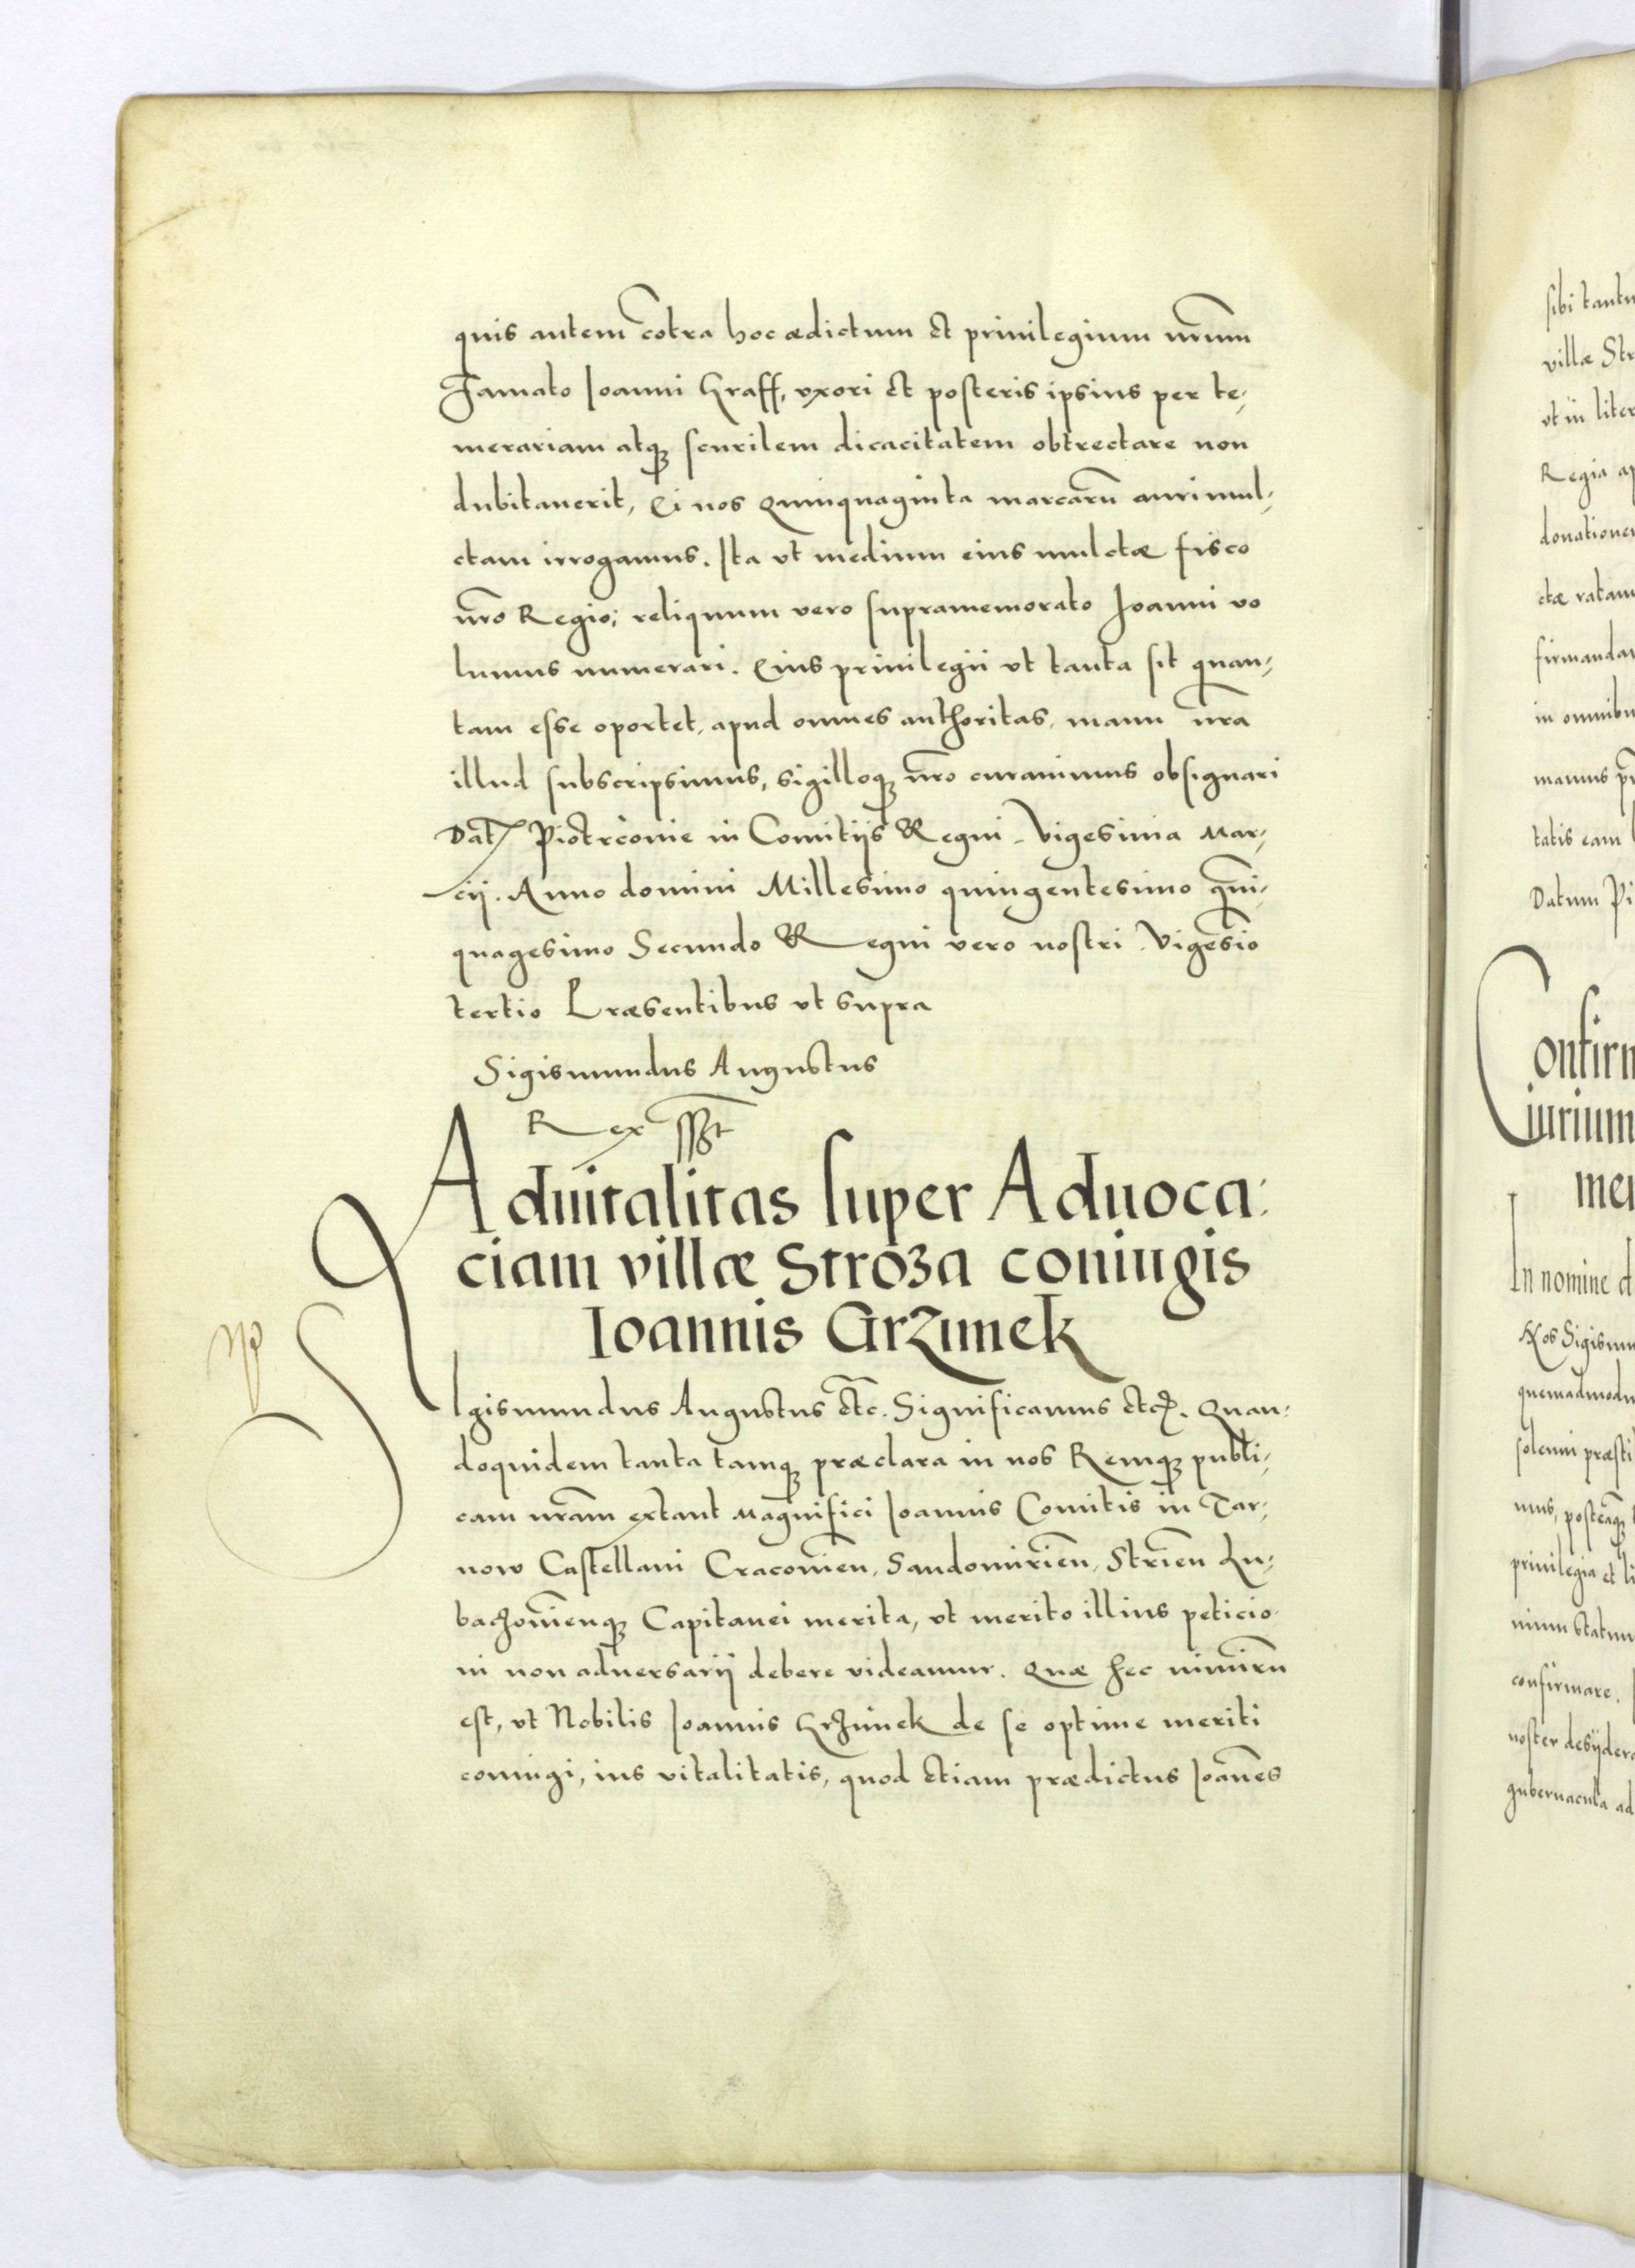 quis autem cōtra hoc ædictum et priuilegium nr̄um
Jamato Ioanni Graff, vxori et posteris ipsius per te,
merariam atqȝ scurilem dicacitatem obtrectare non
dubitauerit, Ei nos Quinquaginta marcarū auri mul,
ctam irrogamus. Ita vt medium eius mulctæ fisco
nr̄o Regio; reliquum vero supramemorato Joanni vo
lumus numerari. Eius priuilegii vt tanta sit quan,
tam esse oportet, apud omnes authoritas, manu nr̄a
illud subscripsimus, sigilloqȝ nr̄o curauimus obsignari
Dat Piotrcouie in Comitijs Regni Vigesima Mar,
cij. Anno domini Millesimo quingentesimo qūi,
quagesimo Secundo Regni vero nostri Vigesīo
tertio Præsentibus vt supra
Sigismundus Augustus
Rex sspt
Aduitalitas super Aduoca:
ciam villæ Stroza coniugis
Ioannis Grzimek
SIgismundus Augustus etc̄. Significamus etc. Quan,
doquidem tanta tamqȝ præclara in nos Remqȝ publi,
cam nr̄am extant Magnifici Ioannis Comitis in Tar,
now Castellani Cracouien̄, Sandomirien̄, Strien̄ Lu,
baczouien̄qȝ Capitanei merita, vt merito illius peticio
ni non aduersarij debere videamur. Quæ hec nimirū
est, vt Nobilis Ioannis Grzimek de se optime meriti
coniugi, ius vitalitatis, quod etiam prædictus Ioānes
sibi tantu
villæ Str
vt in liter
Regia ap
donatione
ctæ ratam
firmandam
in omnibu
manus
tatis eam
Datum Pi
Confirm
iurium
men
In nomine d
Nos Sigismu
quemadmodu
solenni præsti
mus, posteaqȝ
priuilegia et li
nium statuu
confirmare.
noster desydera
gubernacula ad